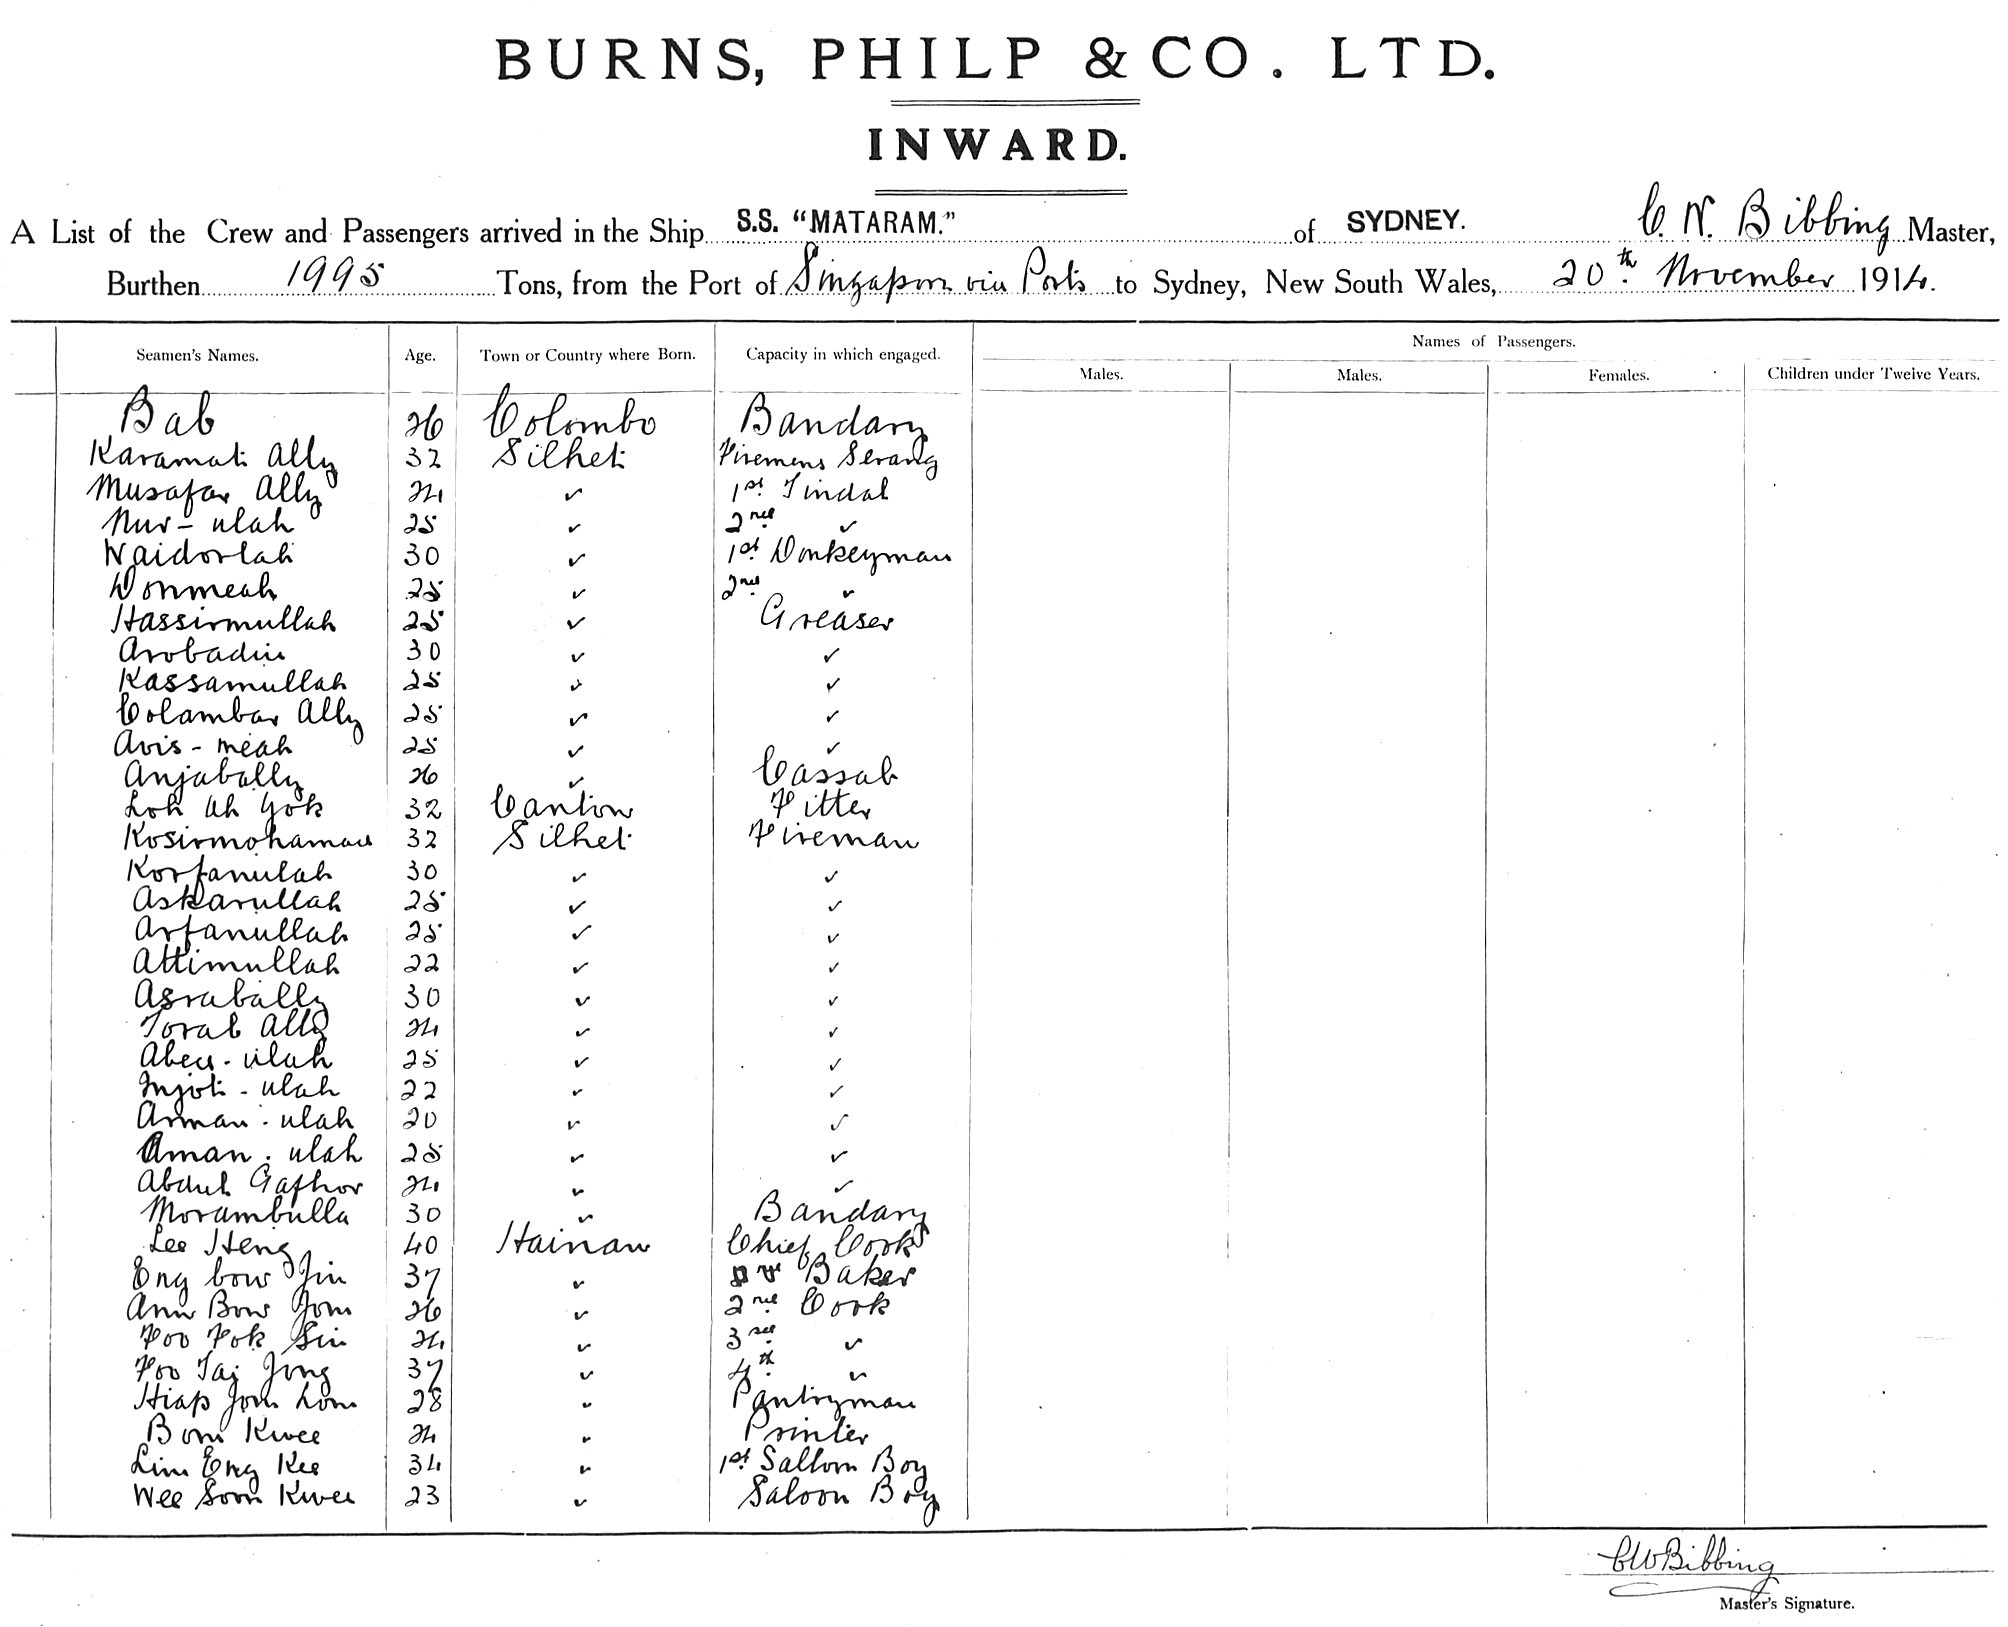 BURNS, PHILP & CO. LTD.
INWARD.
A List of the Crew and Passengers arrived in the Ship S.S. "MATARAM." of SYDNEY. C. W. Bibbing Master,
Burthen 1995 Tons, from the Port of Singapore via Ports to Sydney, New South Wales, 20th November 1914.
Names of Passengers.
Seamen's Names. Age. Town or Country where Born. Capacity in which engaged. Males. Males. Females. Children under Twelve Years.
Bab 26 Colombo Bandary
Karamat Ally 32 Silhet Firemens Serang
Musafar Ally 24 ✓ 1st Tindal
Nur-ulah 25 ✓ 2nd ✓
Waidorlah 30 ✓ 1st Donkeyman
Donmeah 25 ✓ 2nd ✓
Hassirmullah 25 ✓ Greaser
Arobadin 30 ✓ ✓
Kassamullah 25 ✓ ✓
Colambar Ally 25 ✓ ✓
Avis-meah 25 ✓ ✓
Anjabally 26 ✓ Cassab
Loh Ah Yok 32 Canton Fitter
Kosirmohamad 32 Silhet Fireman
Korfanulah 30 ✓ ✓
Askarullah 25 ✓ ✓
Arfanullah 25 ✓ ✓
Attimullah 22 ✓ ✓
Asrabally 30 ✓ ✓
Torab Ally 24 ✓ ✓
Abed-ulah 25 ✓ ✓
Injot-ulah 22 ✓ ✓
Arman-ulah 20 ✓ ✓
Aman-ulah 25 ✓ ✓
Abdul Gafhor 24 ✓ ✓
Morambulla 30 ✓ Bandary
Lee Heng 40 Hainan Chief Cook
Eng bow Jin 37 ✓ Baker
Ann Bow Jom 26 ✓ 2nd Cook
Foo Fok Sin 24 ✓ 3rd ✓
Foo Tai Jong 37 ✓ 4th ✓
Hiap Jom Lom 28 ✓ Pantryman
Bom Kwee 24 ✓ Printer
Lim Eng Kee 34 ✓ 1st Saloon Boy
Wee Soon Kwee 23 ✓ Saloon Boy
CWBibbing
Master's Signature.